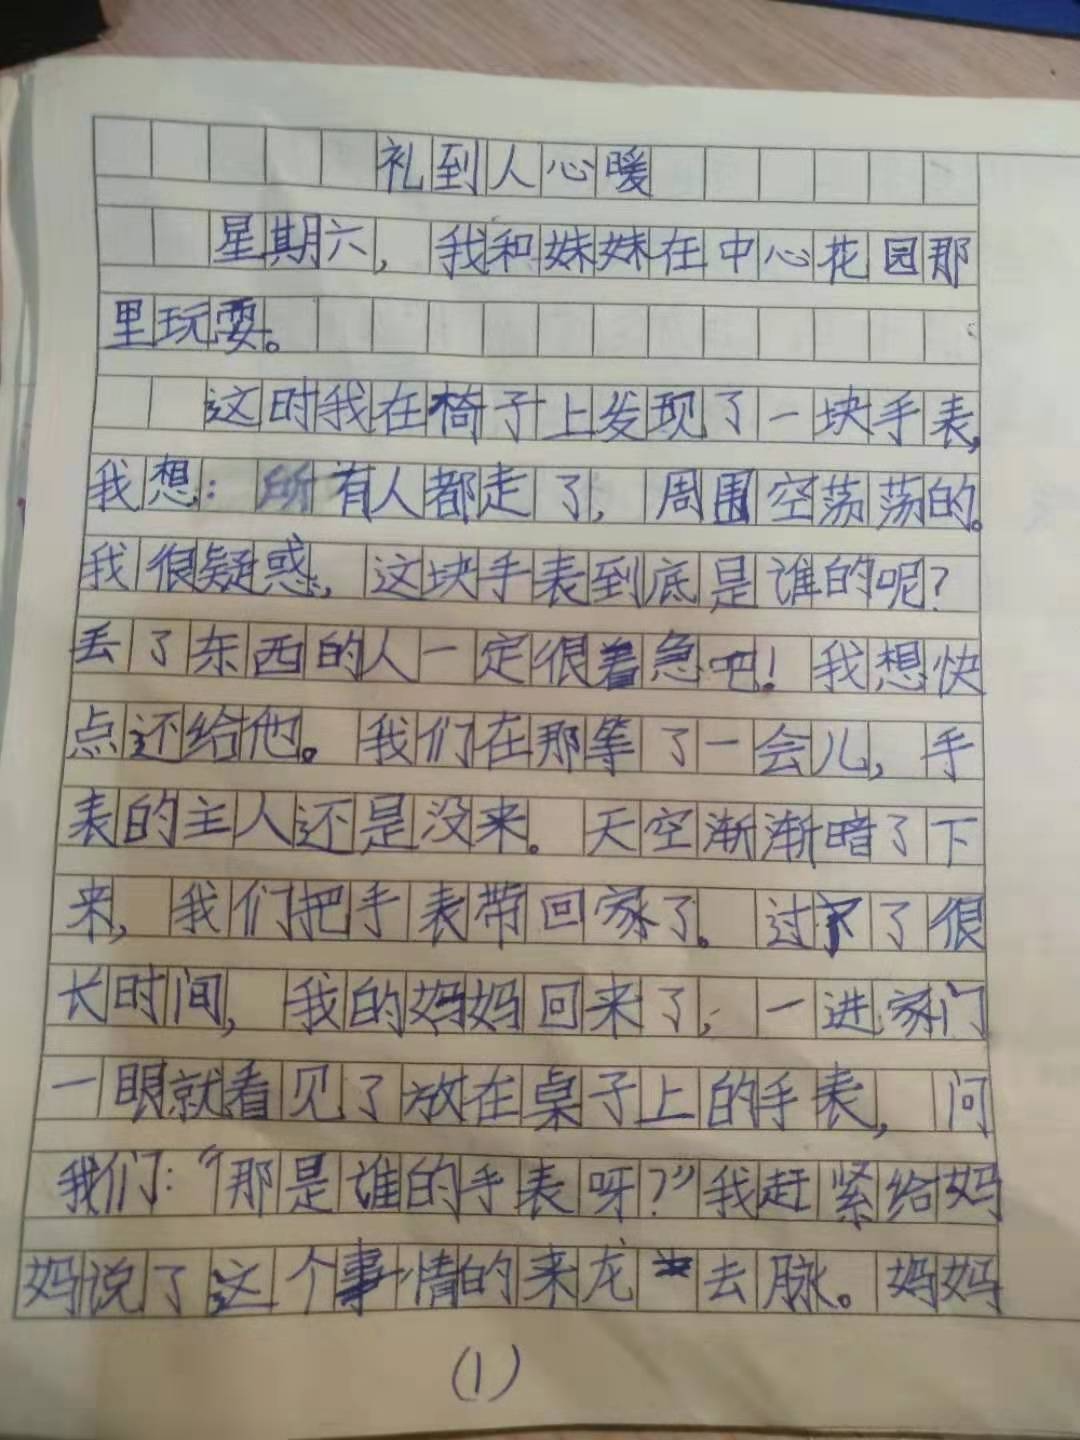 礼到人心暖
星期六，我和妹妹在中心花园那
里玩耍。
这时我在椅子上发现了一块手表，
我想：所有人都走了，周围空荡荡的。
我很疑惑，这块手表到底是谁的呢？
丢了东西的人一定很着急吧！我想快
点还给他。我们在那等了一会儿，手
表的主人还是没来。天空渐渐暗了下
来，我们把手表带回家了。过了很
长时间，我的妈妈回来了，一进家门
一眼就看见了放在桌子上的手表，问
我们：“那是谁的手表呀？”我赶紧给妈
妈说了这个事情的来龙去脉。妈妈
（1）